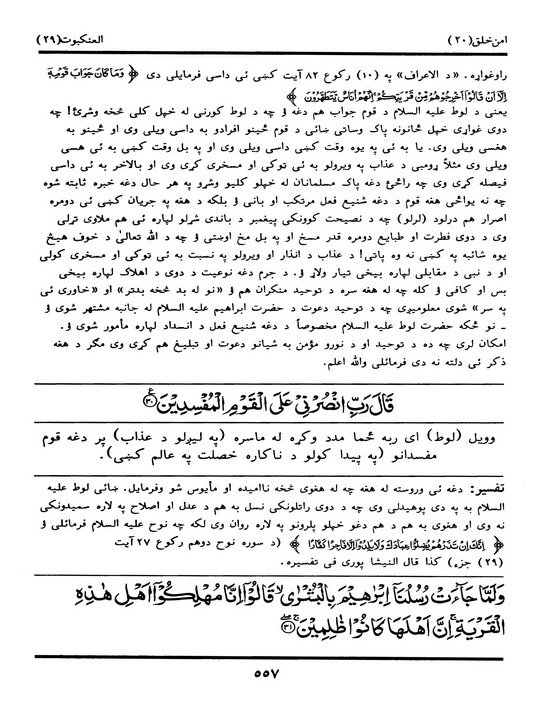 امن خلق (۲۰) العنکبوت (۲۹)
راوغواړه. «د الاعراف» په (۱۰) رکوع ۸۲ آیت کښې ئې داسې فرمایلی دی ﴿ وَمَا كَانَ جَوَابَ قَوْمِهٖٓ
اِلَّآ اَنْ قَالُوْٓا اَخْرِجُوْهُمْ مِّنْ قَرْيَتِكُمْ اِنَّهُمْ اُنَاسٌ يَّتَطَهَّرُوْنَ ﴾
یعنی د لوط علیه السلام د قوم جواب هم دغه ؤ چه د لوط کورنی له خپل کلی څخه وشړئ! چه
دوی غواړی خپل ځانونه پاک وساتی ځائی د قوم ځینو افرادو به داسې ویلی وی او ځینو به
هغسې ویلی وی. یا به ئې په یوه وقت کښې داسې ویلی وی او په بل وقت کښې به ئې هسې
ویلی وی مثلاً ړومبی د عذاب په ویرولو به ئې توکی او مسخری کړی وی او بالاخر به ئې داسې
فیصله کړی وی چه راځئ دغه پاک مسلمانان له خپلو کلیو وشړو په هر حال دغه خبره ثابته شوه
چه نه یواځی هغه قوم د دغه شنیع فعل مرتکب او بانی ؤ بلکه د هغه په جریان کښې ئې دومره
اصرار هم درلود (لرلو) چه د نصیحت کوونکی پیغمبر د باندی شړلو لپاره ئې هم ملاوی تړلی
وی د دوی فطرت او طبایع دومره قدر مسخ او په بل مخ اوښتی ؤ چه د الله تعالیٰ د خوف هیڅ
یوه شائبه په کښې نه وه پاتی! د عذاب د انذار او ویرولو په نسبت به ئې توکی او مسخری کولی
او د نبی د مقابلی لپاره بیخی تیار ولاړ ؤ. د جرم دغه نوعیت د دوی د اهلاک لپاره بیخی
بس او کافی ؤ کله چه له هغه سره د توحید منکران هم ؤ «نو له بد څخه بدتر» او «خاوری ئې
په سر» شوی معلومیږی چه د توحید دعوت د حضرت ابراهیم علیه السلام له جانبه مشتهر شوی ؤ
ـ نو ځکه حضرت لوط علیه السلام مخصوصاً د دغه شنیع فعل د انسداد لپاره مأمور شوی ؤ.
امکان لری چه ده د توحید او د نورو مؤمن به شیانو دعوت او تبلیغ هم کړی وی مګر د هغه
ذکر ئې دلته نه دی فرمائلی والله اعلم.
قَالَ رَبِّ انْصُرْنِيْ عَلَى الْقَوْمِ الْمُفْسِدِيْنَ ﴿۳۰﴾ع
وویل (لوط) ای ربه ځما مدد وکړه له ماسره (په لیږلو د عذاب) پر دغه قوم
مفسدانو (په پیدا کولو د ناکاره خصلت په عالم کښې).
تفسیر: دغه ئې وروسته له هغه چه له هغوی څخه ناامیده او مأیوس شو وفرمایل. ځائی لوط علیه
السلام به په دی پوهیدلی وی چه د دوی راتلونکی نسل به هم د عدل او اصلاح په لاره سمیدونکی
نه وی او هغوی به هم د هم دغو خپلو پلرونو په لاره روان وی لکه چه نوح علیه السلام فرمائلی ؤ
﴿ اِنَّكَ اِنْ تَذَرْهُمْ يُضِلُّوْا عِبَادَكَ وَلَا يَلِدُوْٓا اِلَّا فَاجِرًا كَفَّارًا ﴾ (د سوره نوح دوهم رکوع ۲۷ آیت
(۲۹) جزء) کذا قال النیشا پوری فی تفسیره.
وَلَمَّا جَآءَتْ رُسُلُنَآ اِبْرٰهِيْمَ بِالْبُشْرٰى ۙ قَالُوْٓا اِنَّا مُهْلِكُوْٓا اَهْلِ هٰذِهِ
الْقَرْيَةِ ۚ اِنَّ اَهْلَهَا كَانُوْا ظٰلِمِيْنَ ﴿۳۱﴾
۵۵۷